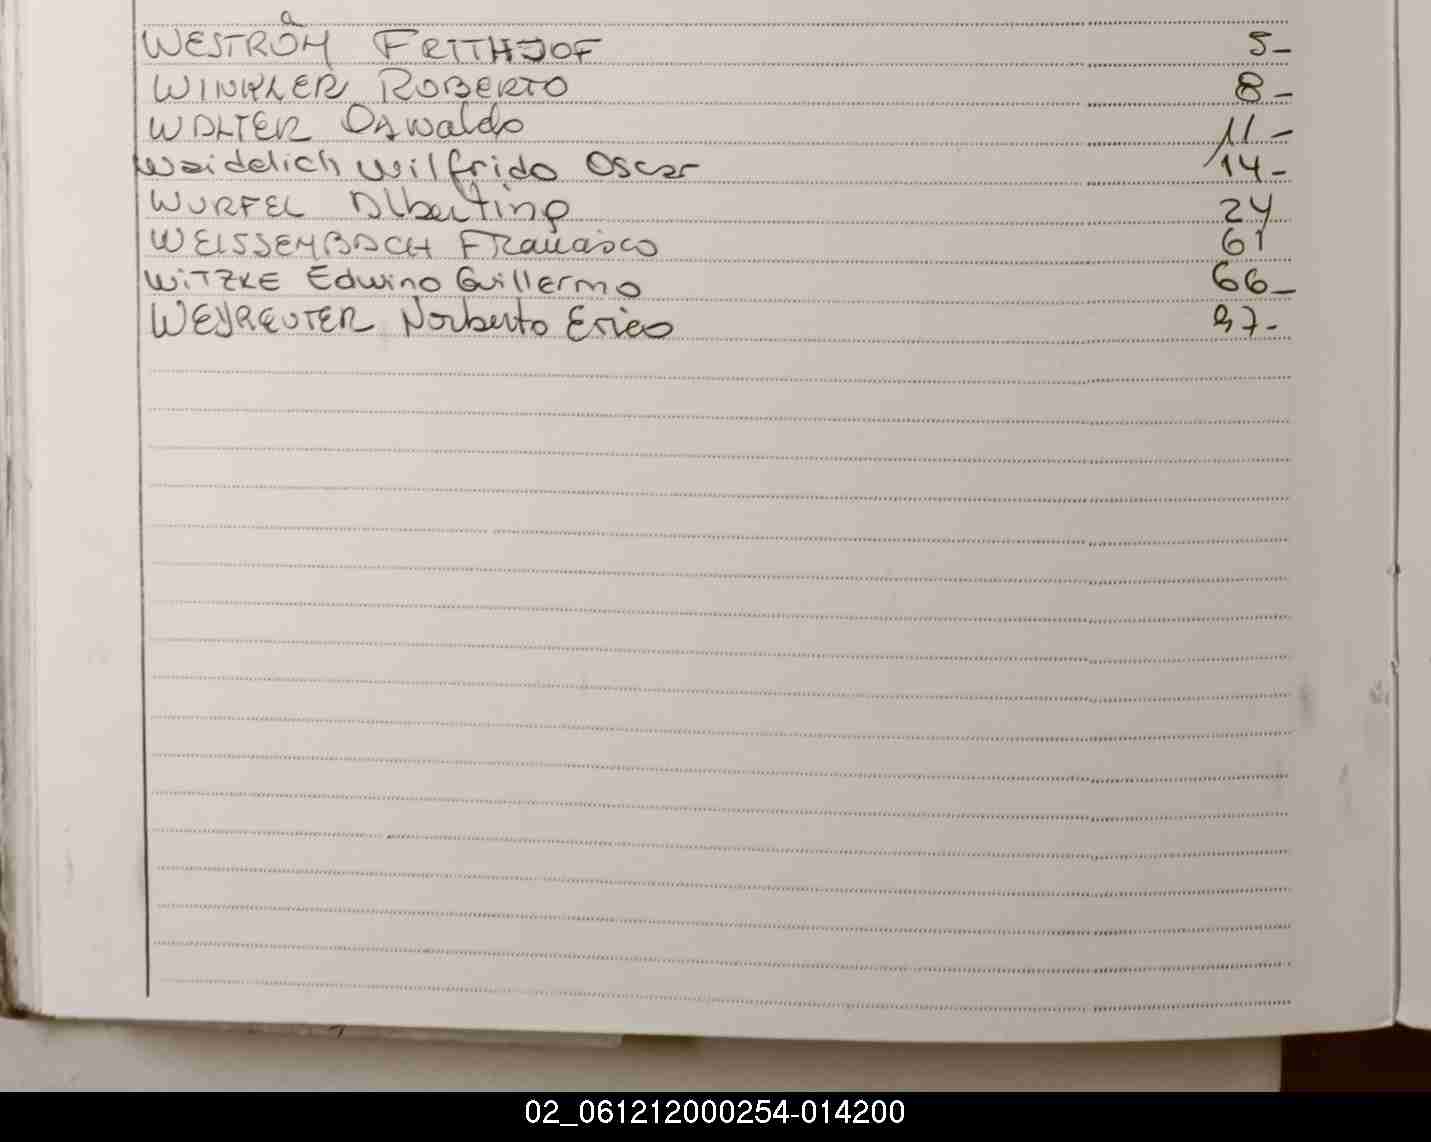 a
WESTRÖM FRITHJOF 5-
WINKLER ROBERTO 8-
WALTER Oswaldo 11-
Weidelich Wilfrido Oscar 14-
WURFEL Albertina 24
WEISSENBACH Francisco 61
WITZKE Edwino Guillermo 66-
WEYREUTER Norberto Erico 97-
02_061212000254-014200